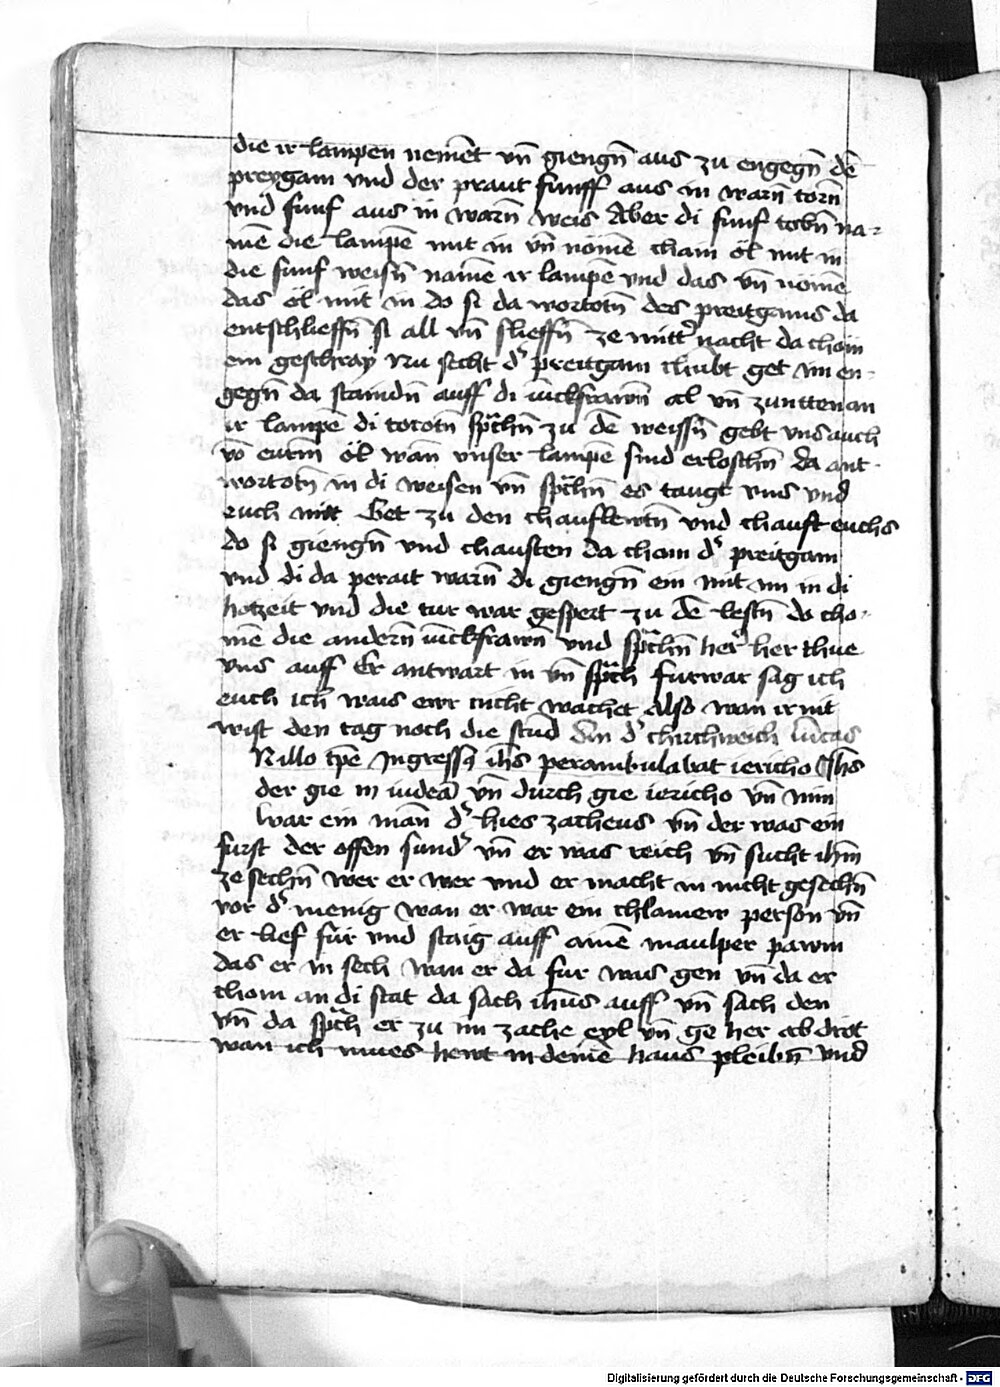 die ir lampen nement vn̄ giengn̄ aus zu engegn̄ dē
preygam vnd der praut funff aus in warn̄ torn̄
vnd funf aus in warn̄ weis Aber di funf tobn̄ na⸗
mē die lampē mit in vn̄ nömē cham öl mit in
die funf weisn̄ namē ir lampē vnd das vn̄ nömē
das öl mit in do si da wortotn̄ des preitgams da
entschlieffn̄ si all vn̄ slieffn̄ ze mittˀ nacht da chom
ein geschray Nu secht dˀ preitgam chūbt get im en⸗
gegn̄ da staindn̄ auff di iūckfrawn̄ al vn̄ zunttenan
ir lampē di torotn̄ sp̄chn̄ zu dē weissn̄ gebt vns auch
vō eurm̄ öl wān vnser lampē sind erloschn̄ da ant⸗
wortotn̄ in di weisen vn̄ sp̄chn̄ es taugt vns vnd
euch nitt Get zu den chauflewtn̄ vnd chauft euchs
do si giengn̄ vnd chauften da chom dˀ preitgam
vnd di da perait warn̄ di giengn̄ ein mit im in di
hotzeit vnd die tur war gespert zu dē lestn̄ do cho⸗
mē die andern̄ iūckfrawn̄ vnd sp̄chn̄ her her thue
vns auff Er antwart in vn̄ sp̄ch furwar sag ich
euch ich wais ewr nicht wachet Also wan ir nit
wist den tag noch die stūd An dˀ chirchweich lucas
N illo tp̄e Ingressꝰ ih̄s perambulabat iericho Ih̄s
der gie in iudeā vn̄ durch gie iericho vn̄ nim
war ein mān dˀ hies zacheus vn̄ der was ein
furst der offen sundˀ vn̄ er was reich vn̄ sucht ih̄m
ze sechn̄ wer er wer vnd er macht in nicht gesechn̄
vor dˀ menig wan er war ein chlainew person vn̄
er lief fur vnd staig auff ainē maulper pawm
das er in sech wan er da fur was gen vn̄ da er
chom an di stat da sach ih̄us auff vn̄ sach den
vn̄ da sp̄ch er zu im zache eyl vn̄ ge her ab drot
wan ich mues hewt in deinē haus pleibn̄ vnd
Digitalisierung gefördert durch die Deutsche Forschungsgemeinschaft - DFG